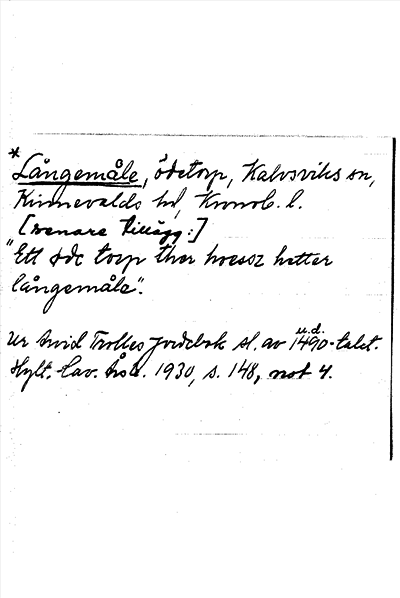 *
Långemåle, ödetorp, Kalvsviks sn,
Kinnevalds hd, Kronob. l.
[senare tillägg:]
"Ett øde torp ther hoessz hetter
långemåle".
u.d.
Ur Arvid Trolles jordebok sl. av 1490-talet.
Hylt.-Cav. års. 1930, s. 148, not 4.